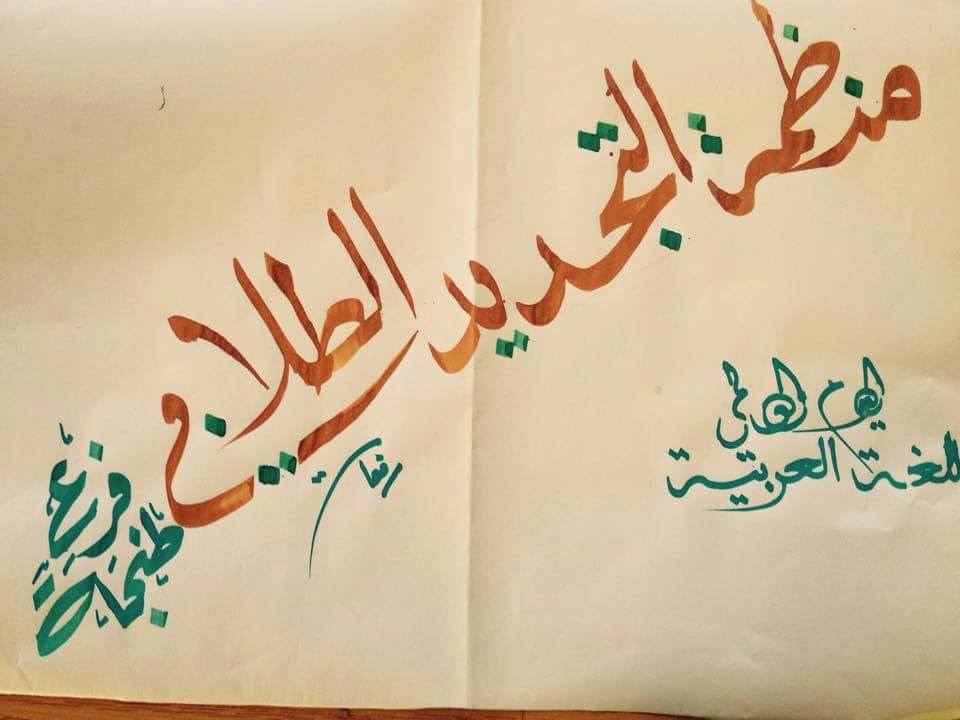 منظمة التجديد الطلابي
فرع
طنجة
اليوم العالمي
للغة العربية